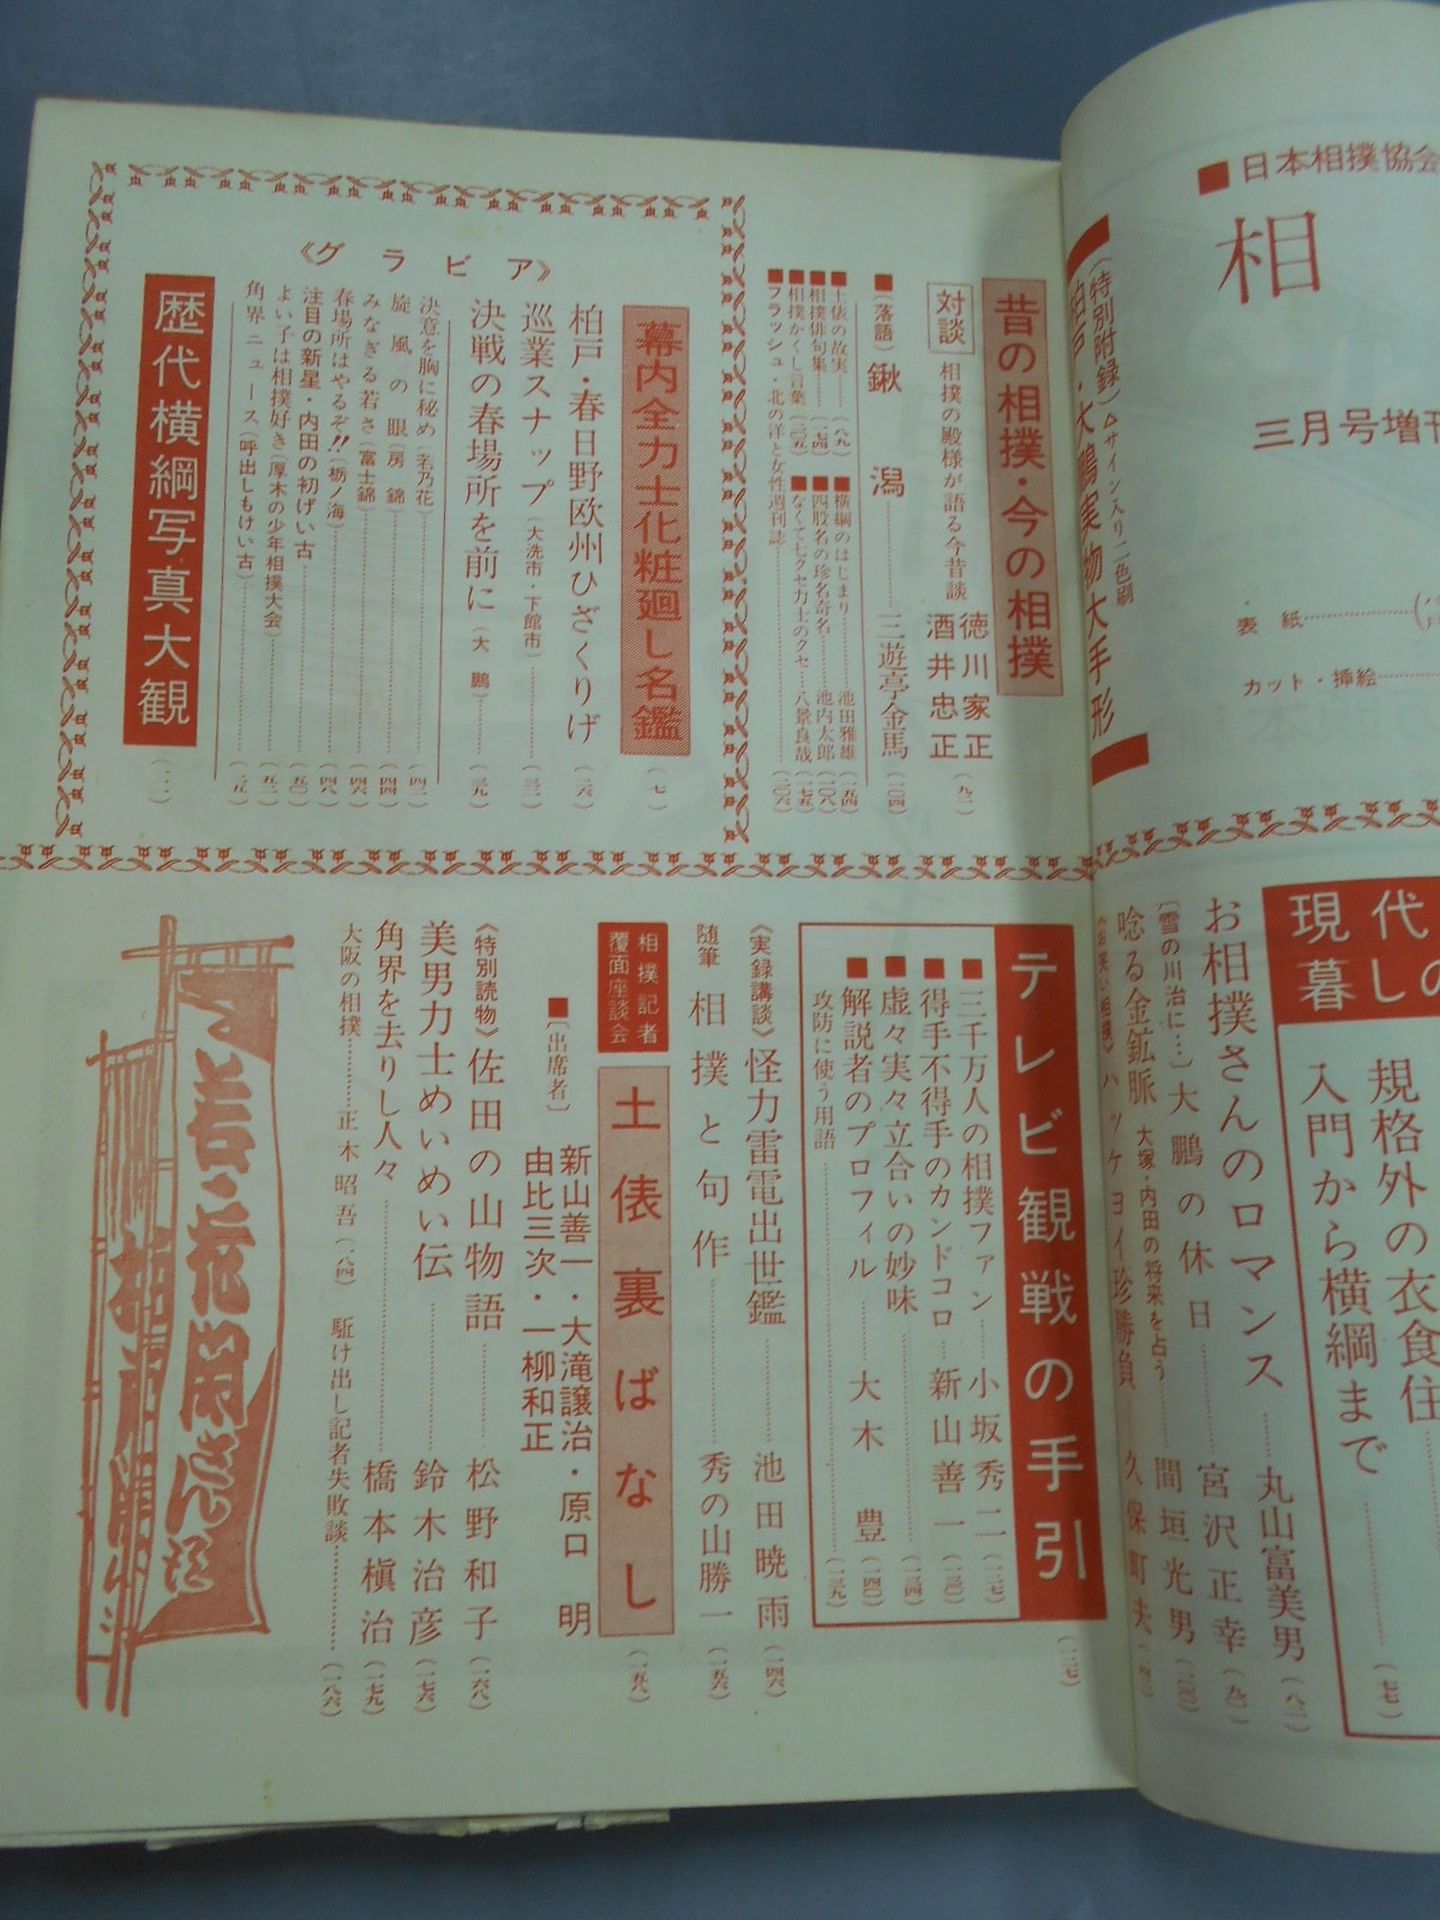 ■日本相撲協会
相
三月号増刊
表紙
カット・挿絵
(特別附録)
サイン入り二色刷
柏戸・大鵬実物大手形
現代
暮しの
規格外の衣食住
入門から横綱まで
(七七)
お相撲さんのロマンス……丸山富美男(八二)
〔雪の川治に…〕大鵬の休日……宮沢正幸
唸る金鉱脈 大塚・内田の将来を占う……間垣光男
《お笑い相撲》ハッケヨイ珍勝負 久保町夫
昔の相撲・今の相撲
対談
相撲の殿様が語る今昔談
徳川家正
酒井忠正
(九二)
■(落語)鍬潟……三遊亭金馬(一〇四)
■土俵の故実……(八九)
■横綱のはじまり……池田雅雄(一五四)
■相撲俳句集……(一七四)
■四股名の珍名奇名……池内太郎(一〇八)
■相撲かくし言葉(二〇五)
■なくて七クセ力士のクセ…八景良哉(一七五)
■フラッシュ・北の洋と女性週刊誌……(二〇六)
《グラビア》
幕内全力士化粧廻し名鑑(一七)
柏戸・春日野欧州ひざくりげ(二六)
巡業スナップ(大洗市・下館市)……(三二)
決戦の春場所を前に(大鵬)……(三九)
決意を胸に秘め(若乃花)……(四二)
旋風の眼(房錦)……(四四)
みなぎる若さ(富士錦)……(四六)
春場所はやるぞ!!(栃ノ海)……(四八)
注目の新星・内田の初げい古……(五〇)
よい子は相撲好き(厚木の少年相撲大会)……(五二)
角界ニュース(呼出しもけい古)……
歴代横綱写真大観
テレビ観戦の手引(一二七)
■三千万人の相撲ファン……小坂秀二(一二七)
■得手不得手のカンドコロ…新山善一(一三〇)
■虚々実々立合いの妙味……(一三四)
■解説者のプロフィル……大木豊(一四〇)
攻防に使う用語……(一三九)
《実録講談》怪力雷電出世鑑……池田暁雨(一四六)
随筆 相撲と句作……秀の山勝一(一五六)
相撲記者
覆面座談会
土俵裏ばなし(一五八)
■〔出席者〕
新山善一・大滝譲治・原口明
由比三次・一柳和正
《特別読物》佐田の山物語……松野和子(一六八)
美男力士めいめい伝……鈴木治彦(一七六)
角界を去りし人々……橋本槇治(一七九)
大阪の相撲……正木昭吾(一八四)
駈け出し記者失敗談……(一八六)
若乃花関さん江
柏戸関